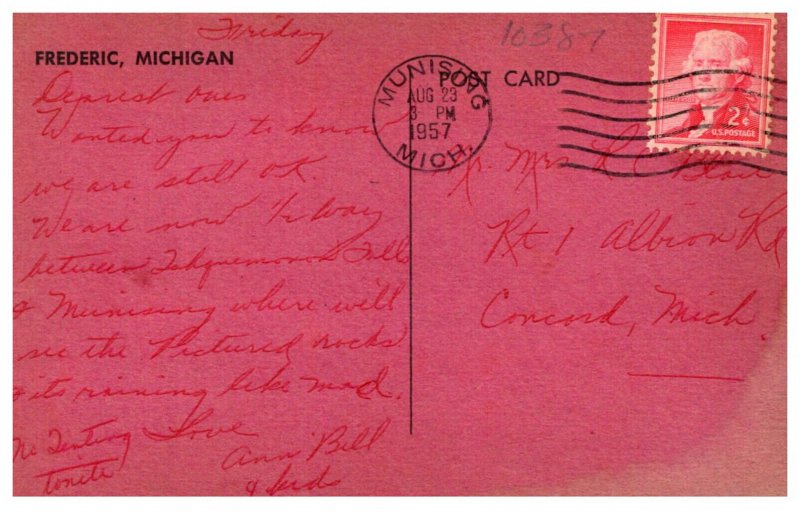 Friday
10387
FREDERIC, MICHIGAN
POST CARD
MUNISING
AUG 23
3 PM
1957
MICH.
2¢
U.S. POSTAGE
Dearest ones
Wanted you to know
we are still OK.
We are now ½ way
between Tahquemenon Falls
& Munising where will
see the Pictured rocks
& its raining like mad.
No Tenting
tonite
Love
Ann Bill
& kids
Mr. Mrs R C Blair
Rt 1 Albion Rd
Concord, Mich.